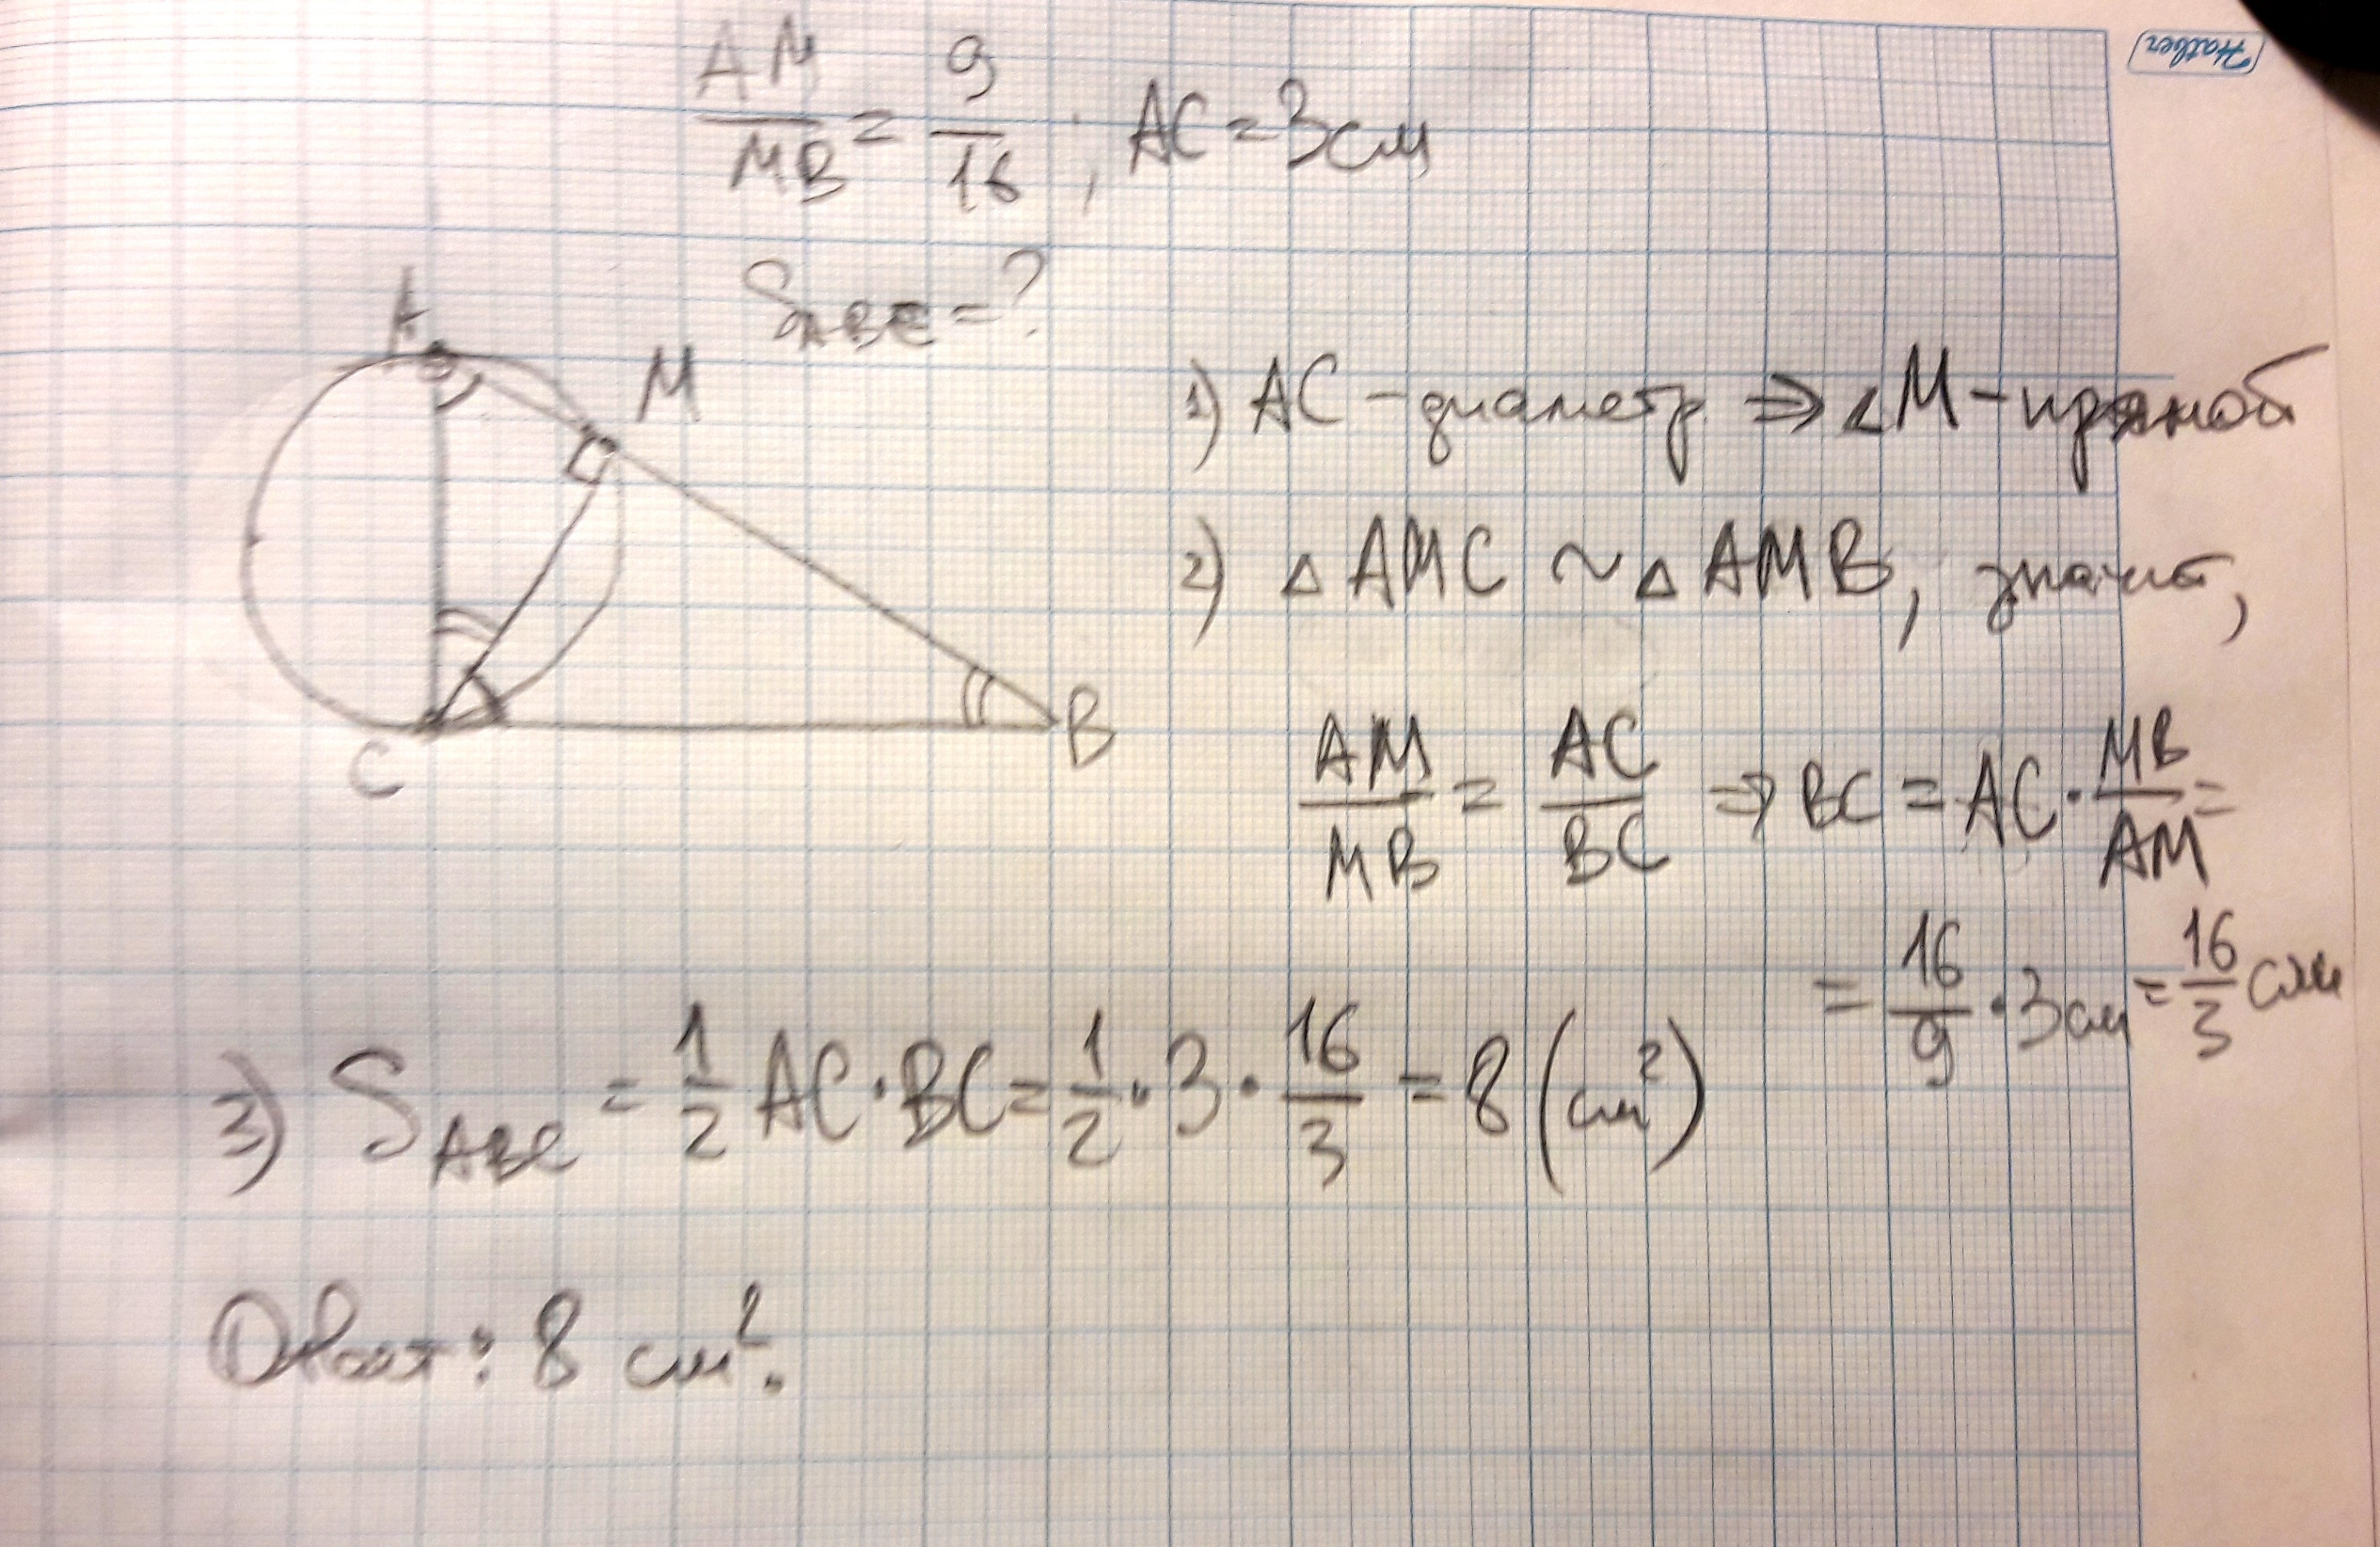 AM/MB = 9/16 ; AC = 3см
Hatber
S_ABC = ?
A
M
C
B
1) AC - диаметр ⇒ ∠M - прямой
2) △ AMC ~ △ AMB, значит,
AM/MB = AC/BC ⇒ BC = AC · MB/AM =
= 16/9 · 3см = 16/3 см
3) S_ABC = 1/2 AC · BC = 1/2 · 3 · 16/3 = 8 (см²)
Ответ: 8 см².